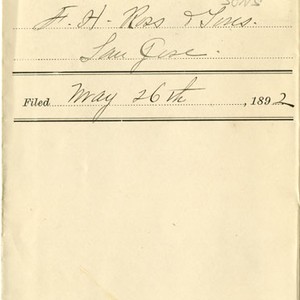 SONS
F. H. Ross & Sons.
San Jose.
Filed May 26th, 1892